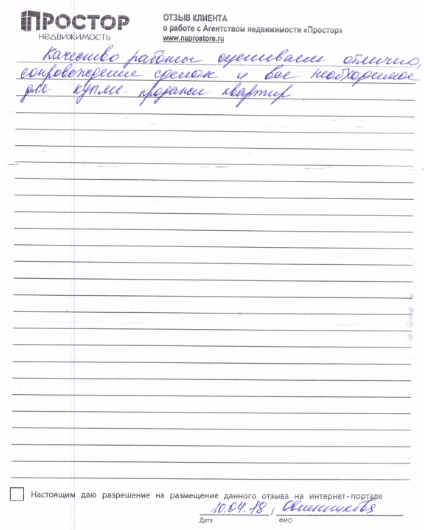 ПРОСТОР
НЕДВИЖИМОСТЬ
ОТЗЫВ КЛИЕНТА
о работе с Агентством недвижимости «Простор»
www.naprostore.ru
Качество работы оцениваем отлично,
сопровождение сделок и все необходимое
для купли-продажи квартир
Настоящим даю разрешение на размещение данного отзыва на интернет-портале
10.04.18, Овчинникова
Дата ФИО